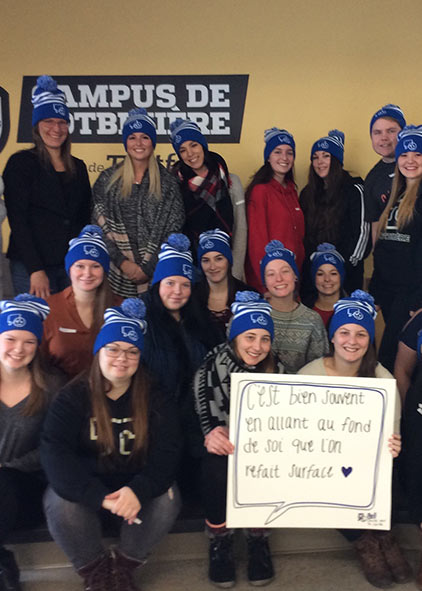 CAMPUS DE
LOTBINIÈRE
de
C'est bien souvent
en allant au fond
de soi que l'on
refait surface ♥
Bell